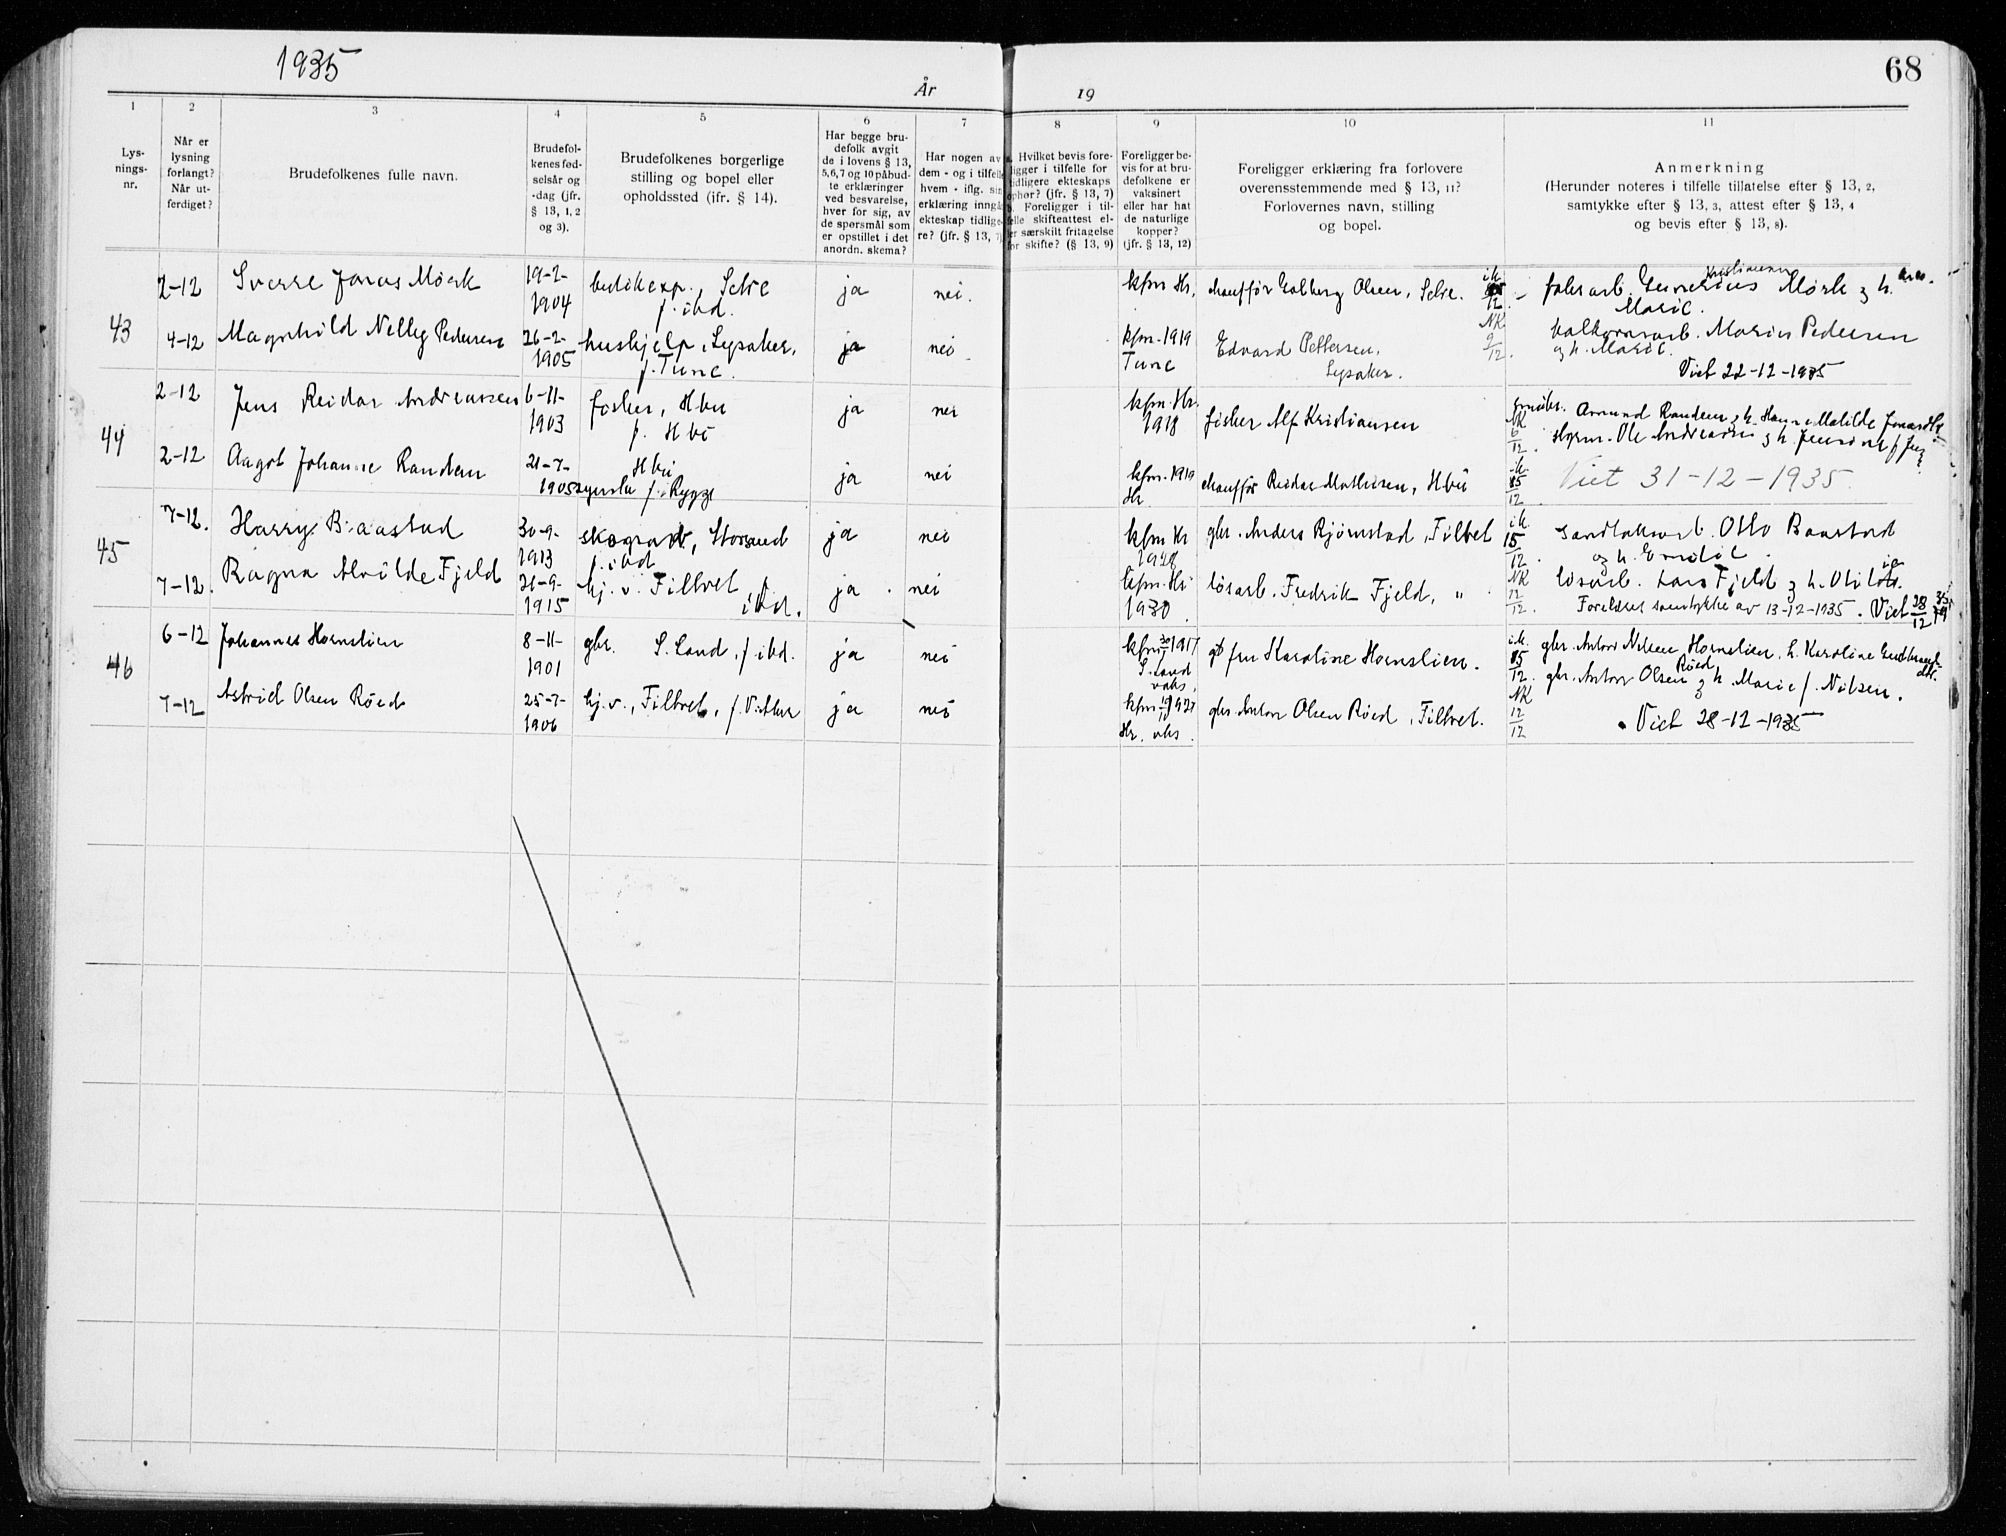 1935
68
År 19
1 2 3 4 5 6 7 8 9 10 11
Lys-
nings-
nr.
Når er
lysning
forlangt?
Når ut-
ferdiget?
Brudefolkenes fulle navn.
Brudefol-
kenes fød-
selsår og
-dag (jfr.
§ 13, 1, 2
og 3).
Brudefolkenes borgerlige
stilling og bopel eller
opholdssted (ifr. § 14).
Har begge bru-
defolk avgit
de i lovens § 13,
5,6,7 og 10 påbud-
te erklæringer
ved besvarelse,
hver for sig, av
de spørsmål som
er opstillet i det
anordn. skema?
Har nogen av
dem - og i tilfelle
hvem - iflg. sin
erklæring inngå
ekteskap tidlige-
re? (jfr. § 13, 7)
Hvilket bevis fore-
ligger i tilfelle for
tidligere ekteskaps
ophør? (jfr. § 13, 7)
Foreligger i til-
felle skifteattest el-
ler særskilt fritagelse
for skifte? (§ 13, 9)
Foreligger be-
vis for at bru-
defolkene er
vaksinert
eller har hat
de naturlige
kopper?
(jfr. § 13, 12)
Foreligger erklæring fra forlovere
overensstemmende med § 13, 11?
Forlovernes navn, stilling
og bopel.
Anmerkning
(Herunder noteres i tilfelle tillatelse efter § 13, 2,
samtykke efter § 13, 3, attest efter § 13, 4
og bevis efter § 13, 8).
43
2-12 Sverre Jonas Mörk 19-2-
1904 butikexp., Sætre
f. ibd. ja nei. kfm Hr, chaufför Golberg Olsen, Sætre. 12 Kristiansen
Mörk g h.
Marie.
4-12 Magnhild Nelly Pedersen 26-2-
1905 hushjelp, Lysaker,
f. Tune. ja nei. kfm. 1919
Tune Edvard Pettersen,
Lysaker. NK 9/12. Marius Pedersen
og h. Marie.
Viet 22-12-1935
44
2-12 Jens Reidar Andreassen 6-11-
1903 fisker, Hbu
f. Hbu ja nei kfm. Hr.
1918 fisker Alf Kristiansen NK 6/12. Amund Randem g h. Hanna Matilde
Ole Andreassen g h.
2-12 Aagot Johanne Randem 21-7-
1905 Hbu
f. Rygge ja nei kfm. 1919
Hr chaufför Reidar Mathisen, Hbu 15/12 Viet 31-12-1935.
45
7-12. Harry Baastad 30-9-
1913 Storsand
f. ibd ja nei kfm Hr
1928 gbr. Anders Bjørnstad, Filtvet 15/12. Otto Baastad
og h. Emilie.
7-12. Ragna Alvilde Fjeld 21-9-
1915 hj. v. Filtvet f.
ibd. ja. nei kfm. Hr
1930. løsarb. Fredrik Fjeld, " NK 12/12. løsarb. Lars Fjeld g h.
Foreldres samtykke av 13-12-1935. Viet 28/12
46
6-12 Johannes Hornslien 8-11-
1901 gbr. S. Land, f. ibd. ja nei kfm 1917
S. Land
vaks. fru Karoline Hornslien. 15/12. gbr. Anton Nilsen Hornslien, h. Karoline
7-12 Astrid Olsen Röed 25-7-
1906 hj. v., Filtvet, f. ja nei kfm 1921
Hr. vaks. gbr. Anton Olsen Röed, Filtvet. NK 12/12 gbr. Anton Olsen Röed g h. Marie f. Nilsen.
Viet 28-12-1935